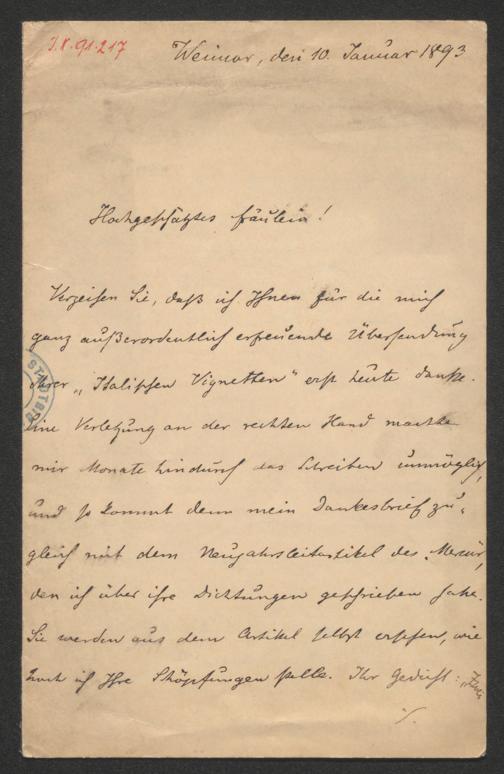 I.N. 91.217
Weimar, den 10. Januar 1893
Hochgeschätztes Fräulein!
Verzeihen Sie, daß ich Ihnen für die mich
ganz außerordentlich erfreuende Übersendung
Ihrer „Italischen Vignetten" erst heute danke.
Eine Verletzung an der rechten Hand machte
mir Monate hindurch das Schreiben unmöglich,
und so kommt denn mein Dankesbrief zu-
gleich mit dem Neujahrsleitartikel des „Mercur",
den ich über ihre Dichtungen geschrieben habe.
Sie werden aus dem Artikel selbst ersehen, wie
hoch ich Ihre Schöpfungen stelle. Ihr Gedicht:
./.